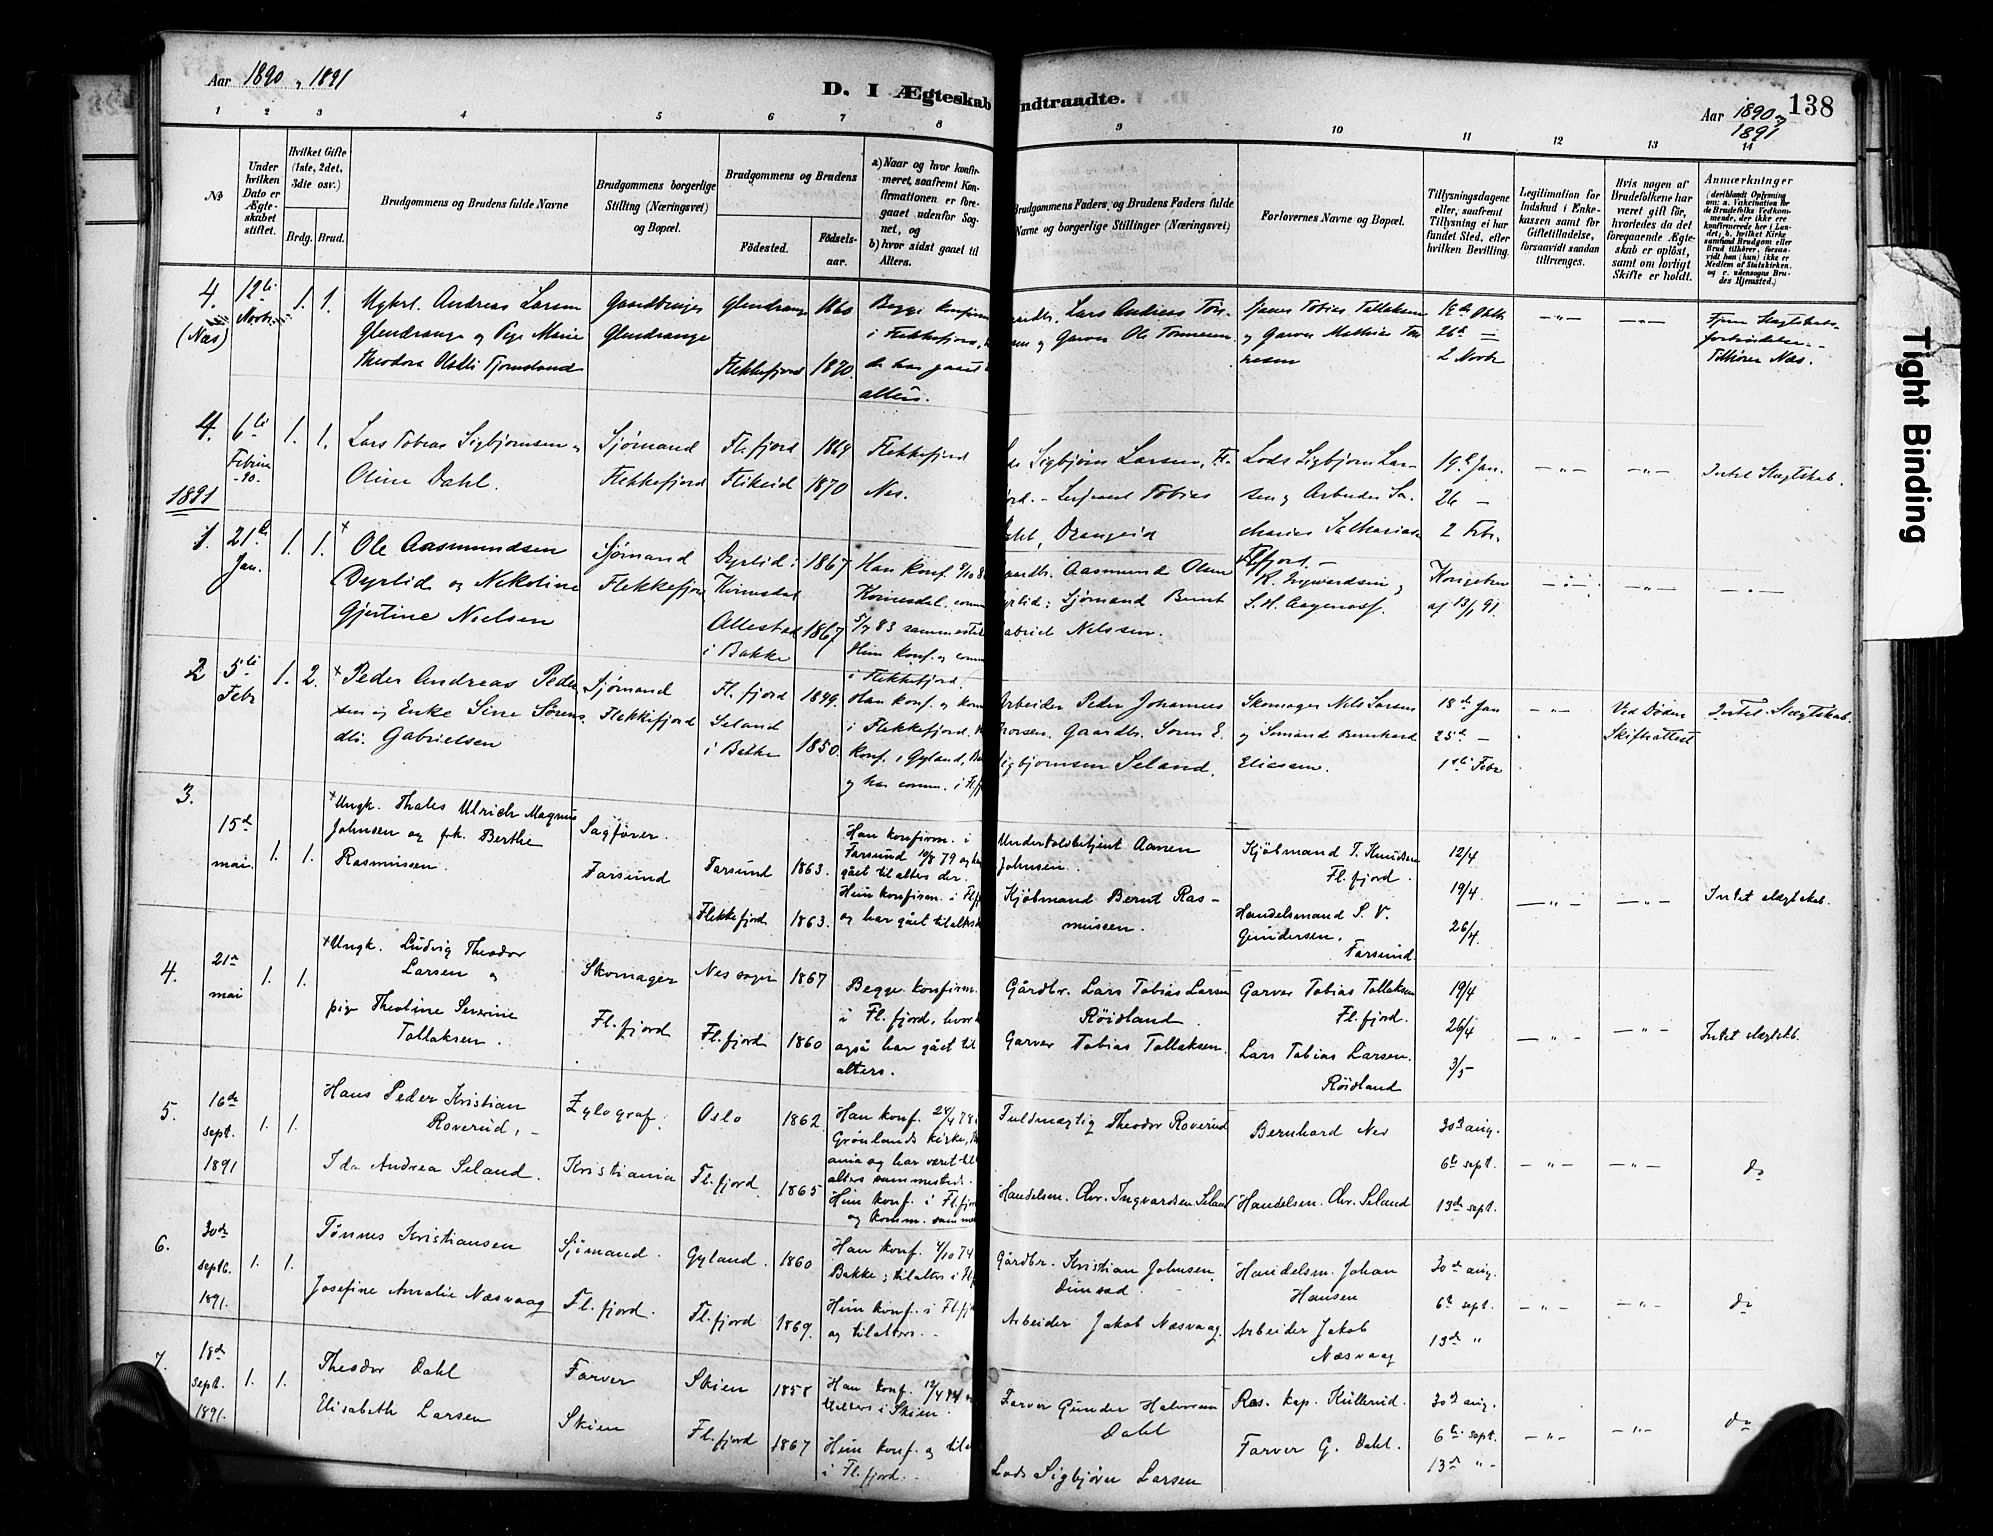 Aar 1890, 1891
D. I Ægteskab
Indtraadte.
Aar 1890,
1891
138
Tight Binding
1 2 3 4 5 6 7 8 9 10 11 12 13 14
№
Under hvilken Dato er Ægteskabet stiftet.
Hvilket Gifte (1ste, 2det, 3die osv.)
Brdg. Brud.
Brudgommens og Brudens fulde Navne
Brudgommens borgerlige Stilling (Næringsvei) og Bopæl.
Brudgommens og Brudens
Fødested.
Fødselsaar.
a) Naar og hvor konfirmeret, saafremt Konfirmationen er foregaaet udenfor Sognet, og
b) hvor sidst gaaet til Alters.
Brudgommens Faders, og Brudens Faders fulde Navne og borgerlige Stillinger (Næringsvei)
Forlovernes Navne og Bopæl.
Tillysningsdagene eller, saafremt Tillysning ei har fundet Sted, efter hvilken Bevilling.
Legitimation for Indskud i Enkekassen samt for Giftetilladelse, forsaavidt saadan tiltrænges.
Hvis nogen af Brudefolkene har været gift før, hvorledes da det foregaaende Ægteskab er opløst, samt om lovligt Skifte er holdt.
Anmerkninger (deriblandt Oplysning om: a. Vakcination for de Brudefolks Vedkommende, der ikke ere konfirmerede her i Landet; b. hvilket Kirkesamfund Brudgom eller Brud tilhører, forsaavidt han (hun) ikke er Medlem af Statskirken, og c. udensogns Brudes Hjemsted.)
4. (Næs) 12te 1. 1. Andreas Larsen Gaardbruger Glendrange 1860 Begge konfirm.
Glendrange og Pige Marie Glendrange i Flekkefjord,
Theodora Tjomsland Flekkefjord 1870. alters.
Lars Andreas Garver Ole Tønnesen
Tobias Tollaksen og Garver Mathias
18de Oktb 26de 2 Novbr
— " — — " — Tilhører Næs.
4. 6te 1. 1. Lars Tobias Sigbjørnsen Sjømand Fl.fjord 1864 Flekkefjord
Oline Dahl. Flekkefjord Flikeid 1870 Nes.
Sigbjørn Larsen, Tobias Drangeid
Lods Sigbjørn Larsen og Arbeider
19de Jan. 26 — 2 Febr.
— " — — " — Intet Slægtskab.
1891
1. 21de Jan. 1. 1. Ole Aasmundsen Sjømand Dyrlid: 1867 Han konf.
Dyrlid og Nikoline Flekkefjord Kvinesdal
Gjertine Nielsen Allestad i Bakke 1867 83 sammesteds
Hun konf. og i Flekkefjord.
Aasmund Olsen Dyrlid; Sjømand Bernt Gabriel Nilssen.
Fl.fjord. — K. Ingwardsen S. H. Aagenæs.
af 13/1 91.
2 5te Febr 1. 2. Peder Andreas Pedersen og Enke Sine Sørensdtr. Gabrielsen
Sjømand Flekkefjord Fl. fjord 1849. Seland i Bakke 1850.
Han konf. og i Flekkefjord. konf. i Gyland, og har comm. i Fl.fj
Arbeider Peder Johannes Gaardbr. Søren E. Sigbjørnsen Seland.
Skomager Nils Larsen og Sømand Bernhard Eliesen.
18de Jan 25de — 1ste Febr
— " — Ved Døden Skifteattest Intet Slægtskab.
3. 15de mai. 1. 1. Ungk. Thales Ulrich Magnus Johnsen og frk. Berthe Rasmussen.
Sagfører. Farsund Farsund 1863. Flekkefjord 1863.
Han konfirm. i Farsund 79 og gået til alters der. Hun konfirm. i Fl.fj og har gået til alters
Undertoldbetjent Aanen Johnsen. Kjøbmand Bernt Rasmussen.
Kjøbmand T. Knudsen Fl.fjord. Handelsmand S. V. Gundersen, Farsund.
12/4 19/4 26/4.
— " — — " — Intet slægtskab.
4. 21de mai 1. 1. Ungk. Ludvig Theodor Larsen og pige Theoline Severine Tollaksen.
Skomager Fl.fjord Nes sogn 1867 Fl.fjord 1860
Begge konfirm. i Fl.fjord, hvor også har gået til alters.
Gårdbr. Lars Tobias Larsen Røidland. Garver Tobias Tollaksen.
Garver Tobias Tollaksen Fl.fjord. Lars Tobias Larsen. Røidland
19/4 26/4 3/5
— " — — " — Intet slægtskb.
5. 16de sept. 1891 1. 1. Hans Peder Kristian Roverud, — Ida Andrea Seland.
Xylograf. Kristiania Oslo 1862. Fl.fjord. 1865
Han konf. 78 Grønlands kirke, og har været til alters sammesteds. Hun konf. i Fl.fjord og komm. samme
Fuldmægtig Theodor Roverud Handelsm. Chr. Ingvardsen Seland
Bernhard Nev Handelsm. Chr. Seland
30te aug. 6te sept. 13de sept.
— " — — " — do
6. 30de septb. 1891. 1. 1. Tønnes Kristiansen Josefine Amalie Næsvaag
Sjømand. Fl.fjord. Gyland. 1860 Fl.fjord 1869.
Han konf. 4/10 74 Bakke; til alters i Hun konf. i Fl.fj og til alters. —
Gårdbr. Kristian Johnsen Arbeider Jakob Næsvaag.
Handelsm. Johan Hansen Arbeider Jakob Næsvaag
30te aug. 6te sept. 13de "
— " — — " — do
7. 18de sept. 1891. 1. 1. Theodor Dahl Elisabeth Larsen
Farver Skien Skien 1858 Fl.fjord 1867
Han konf. til alters i Skien. Hun konf. og til i Fl.fjord. —
Farver Gunder Dahl Lods Sigbjørn Larsen
Ras. Kap. Kullerud. Farver G. Dahl.
30te aug. 6te sept. 13de " —
— " — — " — do